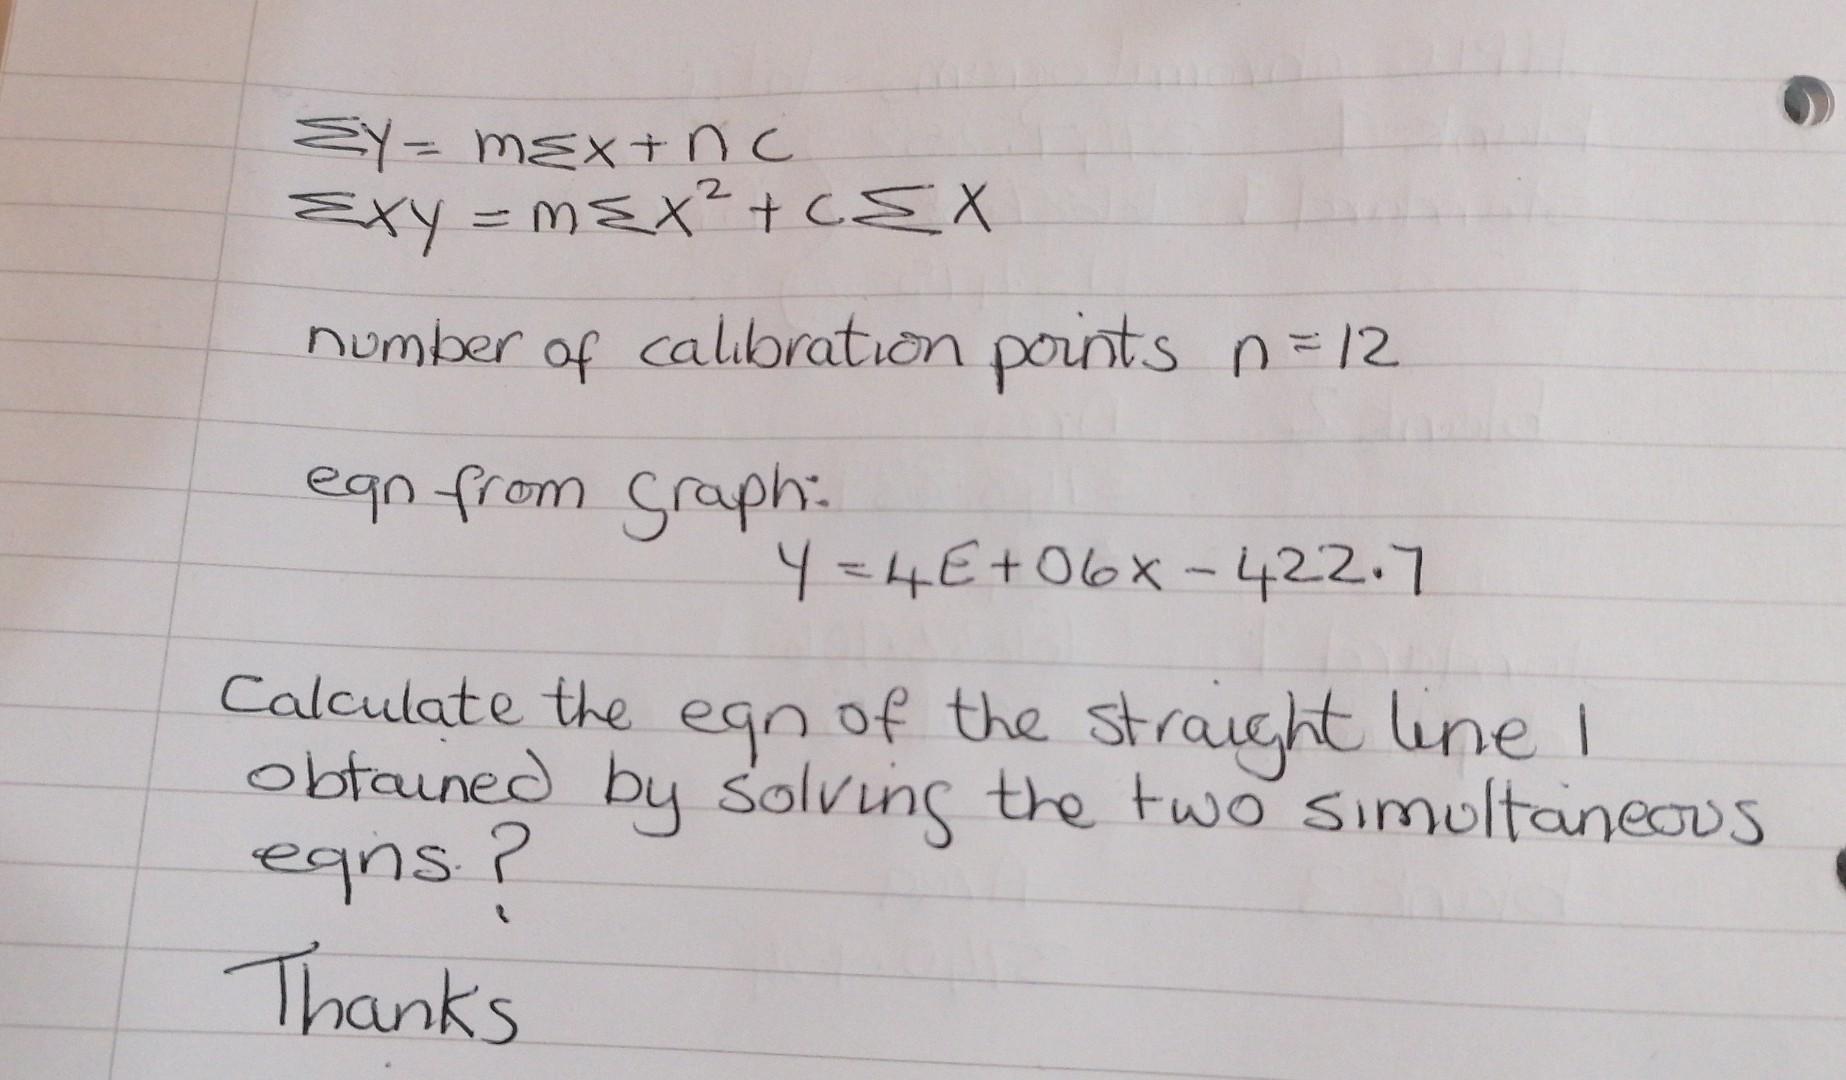 Σy = mΣx + nc
Σxy = mΣx² + cΣx
number of calibration points n = 12
eqn from graph:
y = 4E+06x - 422.7
Calculate the eqn of the straight line I
obtained by solving the two simultaneous
eqns.?
Thanks